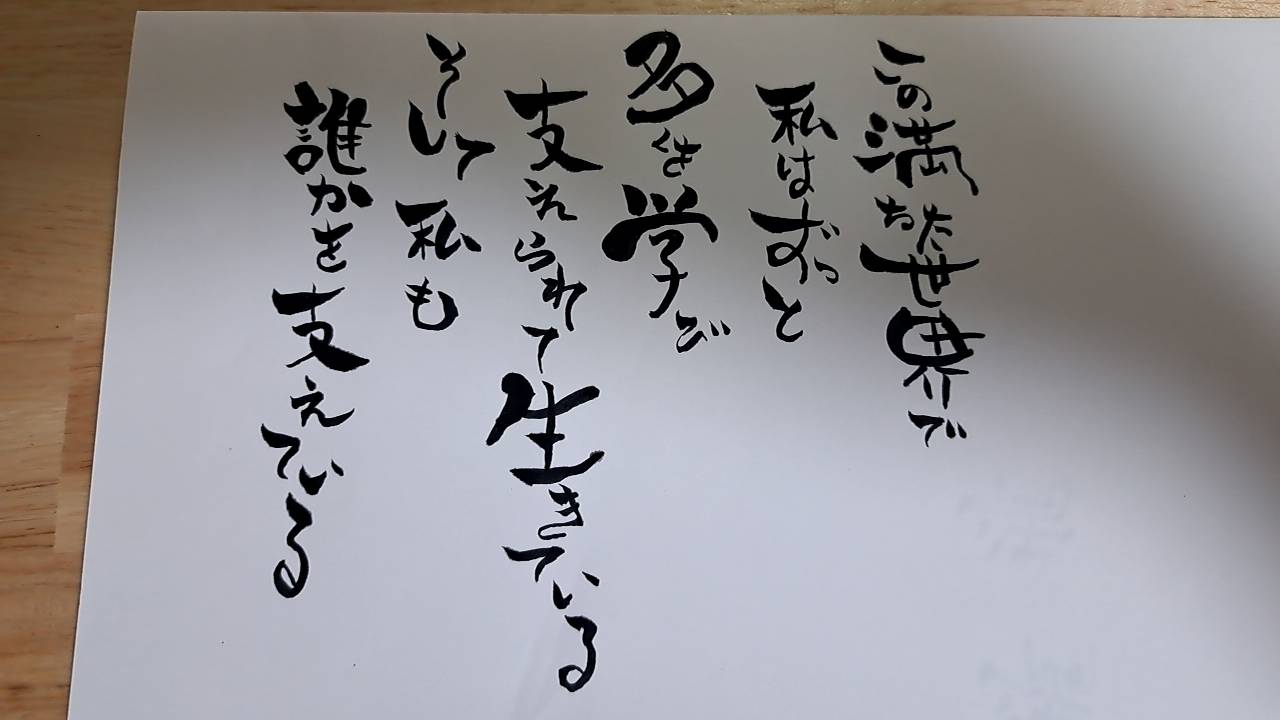 この満ちた世界で
私はずっと
多くを学び
支えられて生きている
そして私も
誰かを支えている